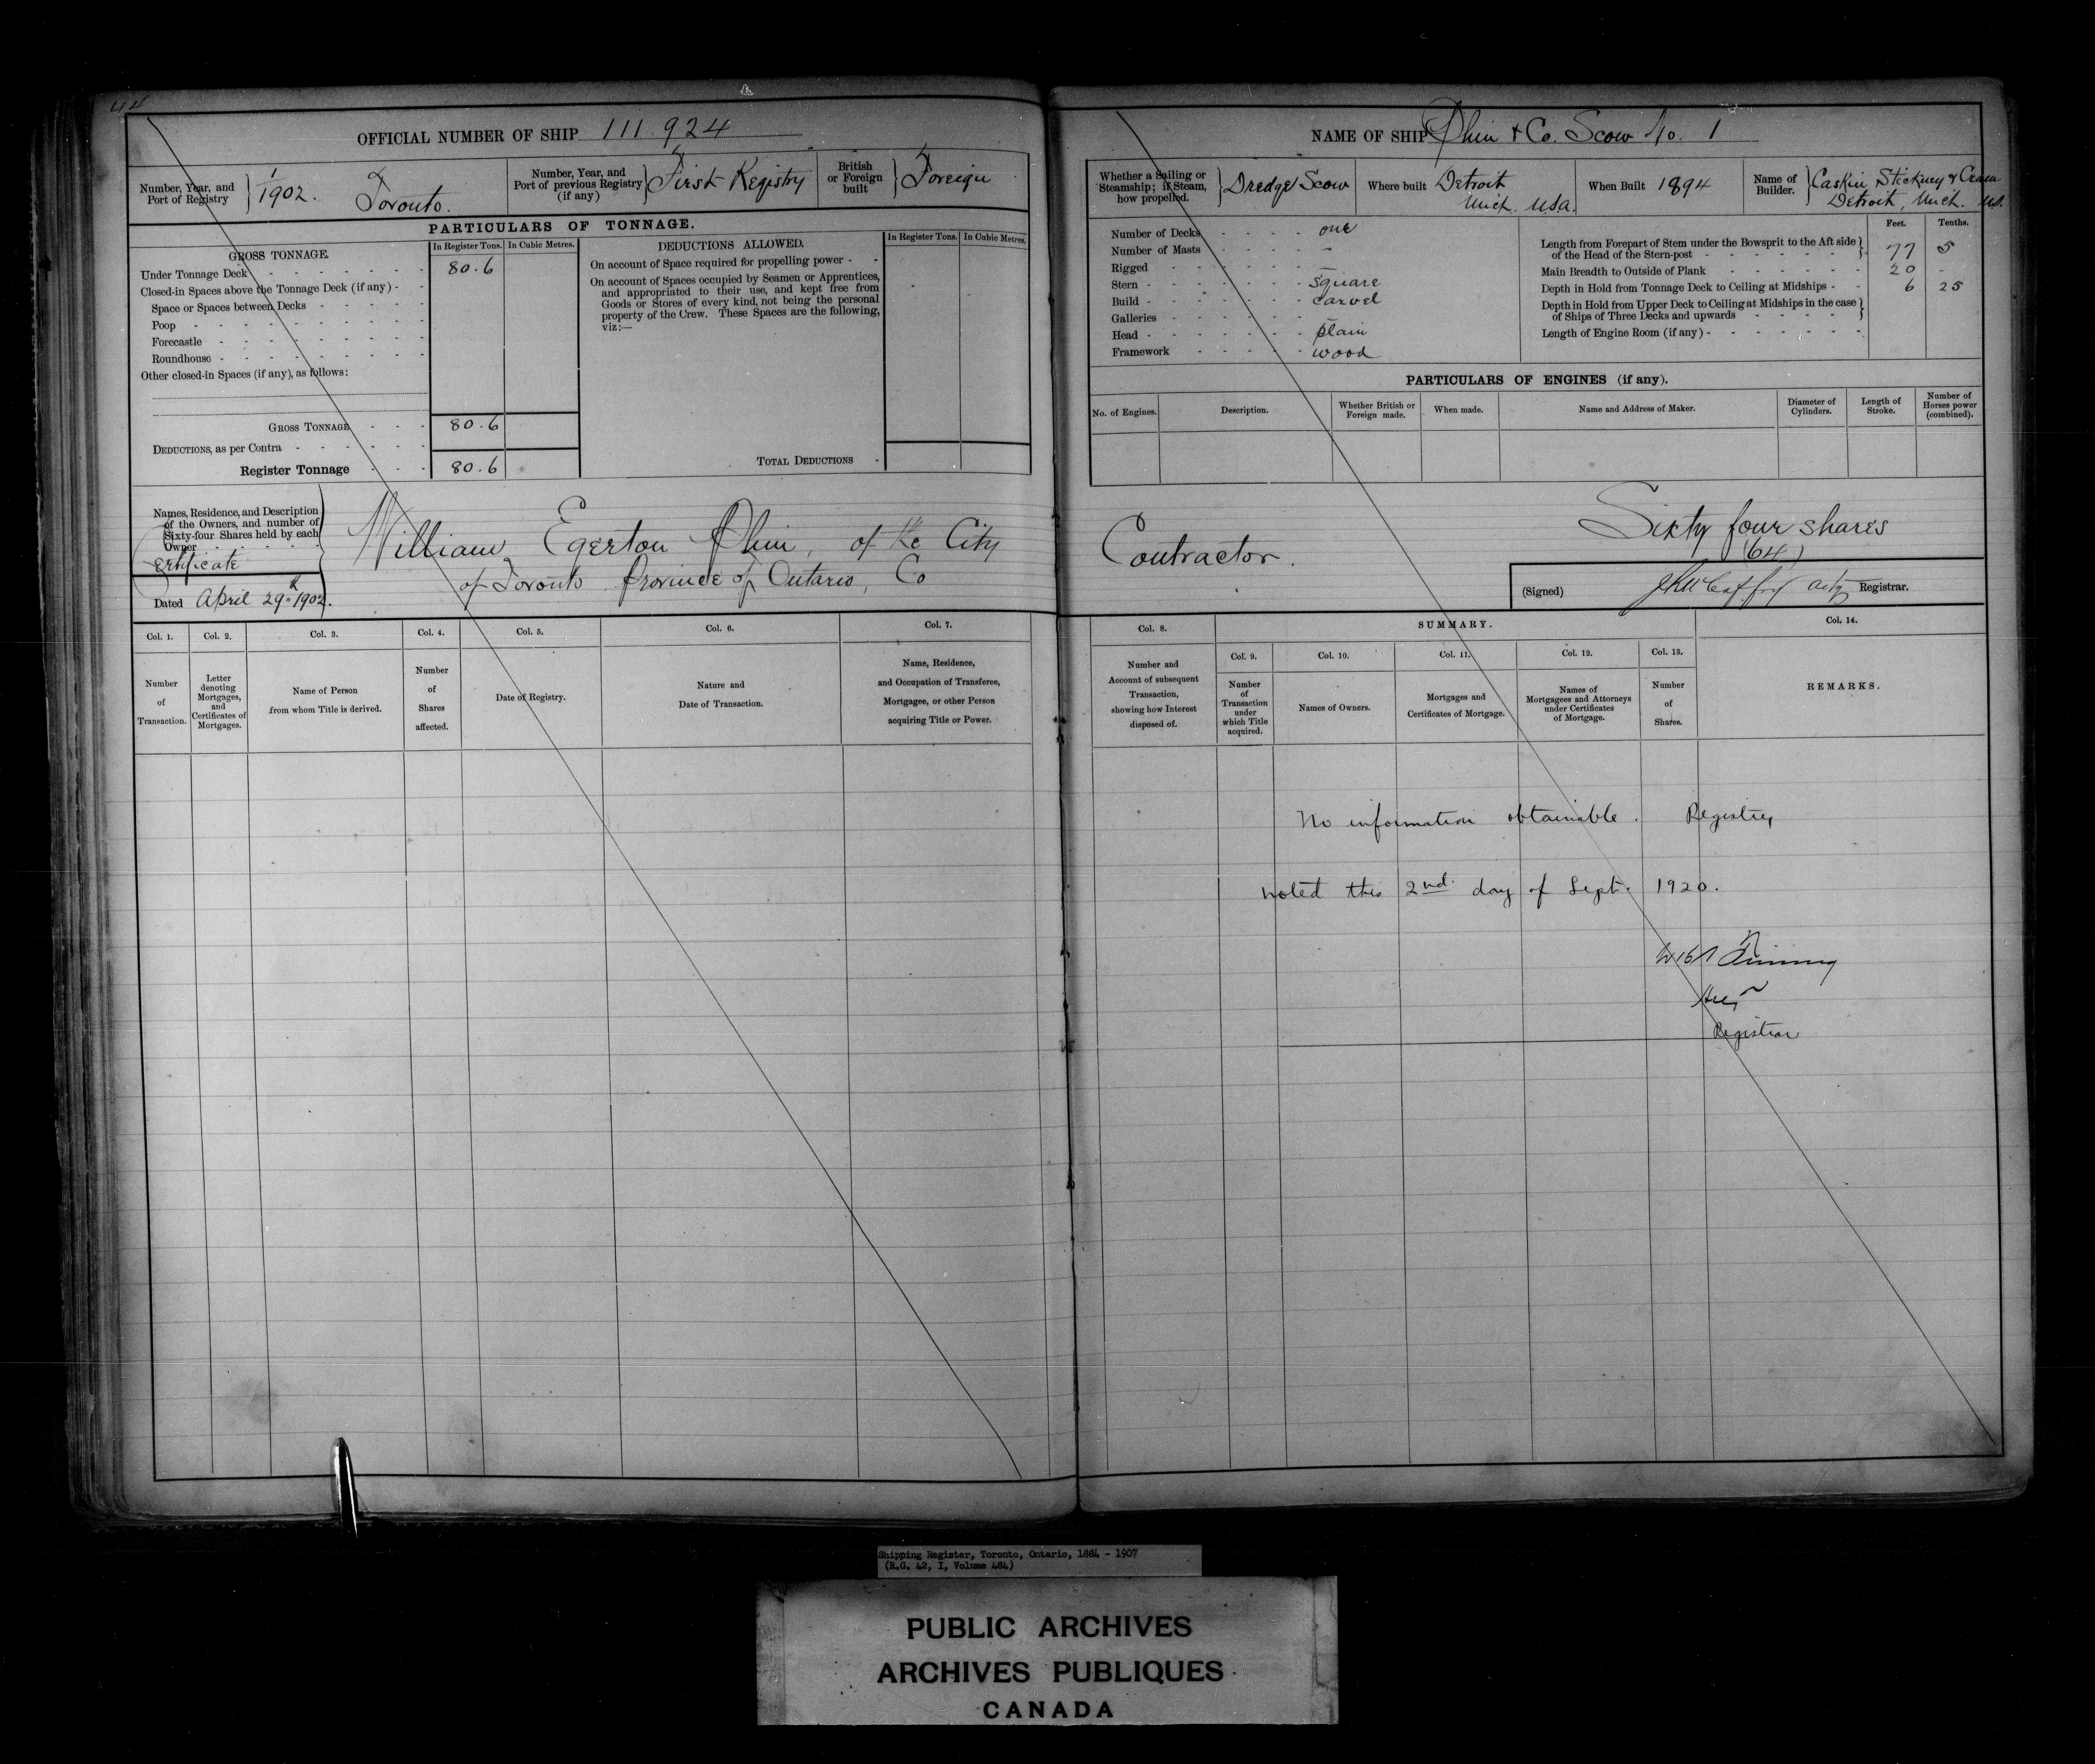 44
OFFICIAL NUMBER OF SHIP 111 924
Number, Year, and Port of Registry } 1/1902. Toronto.
Number, Year, and Port of previous Registry (if any) } First Registry
British or Foreign built } Foreign
PARTICULARS OF TONNAGE.
GROSS TONNAGE.
In Register Tons. In Cubic Metres.
DEDUCTIONS ALLOWED.
In Register Tons. In Cubic Metres.
Under Tonnage Deck 80.6
Closed-in Spaces above the Tonnage Deck (if any)
Space or Spaces between Decks
Poop
Forecastle
Roundhouse
Other closed-in Spaces (if any), as follows:
GROSS TONNAGE 80.6
DEDUCTIONS, as per Contra
Register Tonnage 80.6
On account of Space required for propelling power
On account of Spaces occupied by Seamen or Apprentices,
and appropriated to their use, and kept free from
Goods or Stores of every kind, not being the personal
property of the Crew. These Spaces are the following,
viz:—
TOTAL DEDUCTIONS
Names, Residence, and Description
of the Owners, and number of
Sixty-four Shares held by each
Owner
Certificate
Dated April 29th 1902.
William Egerton Phin, of the City
of Toronto Province of Ontario, Co
Col. 1. Col. 2. Col. 3. Col. 4. Col. 5. Col. 6. Col. 7.
Number of Transaction.
Letter denoting Mortgages, and Certificates of Mortgages.
Name of Person from whom Title is derived.
Number of Shares affected.
Date of Registry.
Nature and Date of Transaction.
Name, Residence, and Occupation of Transferee, Mortgagee, or other Person acquiring Title or Power.
NAME OF SHIP Phin & Co. Scow No. 1
Whether a Sailing or Steamship; if Steam, how propelled. } Dredge Scow
Where built Detroit Mich. USA.
When Built 1894
Name of Builder. } Caskin Stickney & Cram Detroit, Mich. US.
Number of Decks one
Number of Masts –
Rigged –
Stern square
Build carvel
Galleries –
Head plain
Framework wood
Feet. Tenths.
Length from Forepart of Stem under the Bowsprit to the Aft side
of the Head of the Stern-post 77 5
Main Breadth to Outside of Plank 20 -
Depth in Hold from Tonnage Deck to Ceiling at Midships 6 25
Depth in Hold from Upper Deck to Ceiling at Midships in the case
of Ships of Three Decks and upwards
Length of Engine Room (if any)
PARTICULARS OF ENGINES (if any).
No. of Engines. Description. Whether British or Foreign made. When made. Name and Address of Maker. Diameter of Cylinders. Length of Stroke. Number of Horses power (combined).
Contractor.
Sixty four shares
(64)
(Signed) Actg Registrar.
Col. 8. SUMMARY. Col. 14.
Col. 9. Col. 10. Col. 11. Col. 12. Col. 13.
Number and Account of subsequent Transaction, showing how Interest disposed of.
Number of Transaction under which Title acquired.
Names of Owners.
Mortgages and Certificates of Mortgage.
Names of Mortgagees and Attorneys under Certificates of Mortgage.
Number of Shares.
REMARKS.
No information obtainable. Registry
noted this 2nd day of Sept. 1920.
Registrar
Shipping Register, Toronto, Ontario, 1884 - 1907
(R.G. 42, I, Volume 484)
PUBLIC ARCHIVES
ARCHIVES PUBLIQUES
CANADA